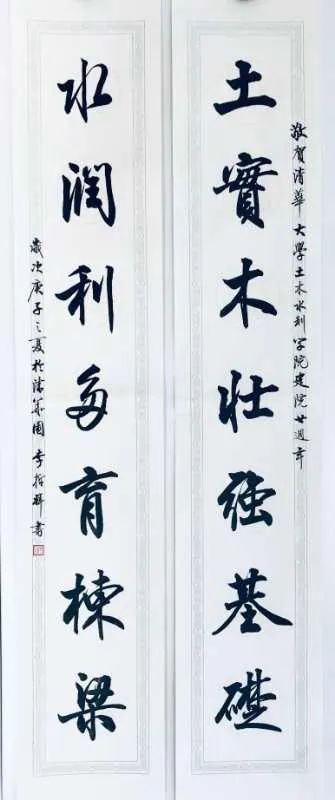 敬賀清華大學土木水利學院建院廿週年
土實木壯強基礎
水潤利多育棟梁
歲次庚子之夏於清華園李哲輝書